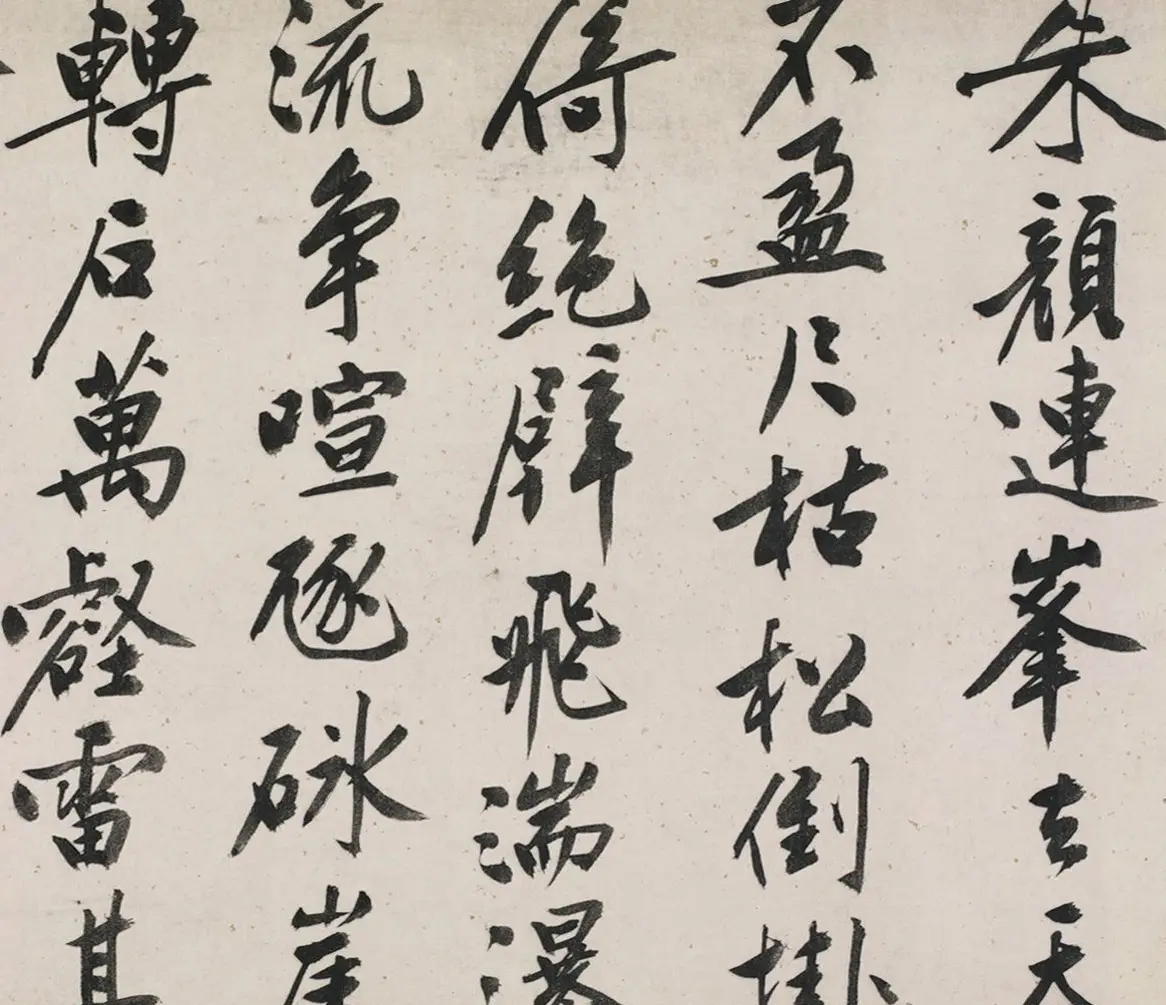 朱顏連峯去天
不盈尺枯松倒掛
倚絶壁飛湍瀑
流争喧豗砯崖
轉石萬壑雷其